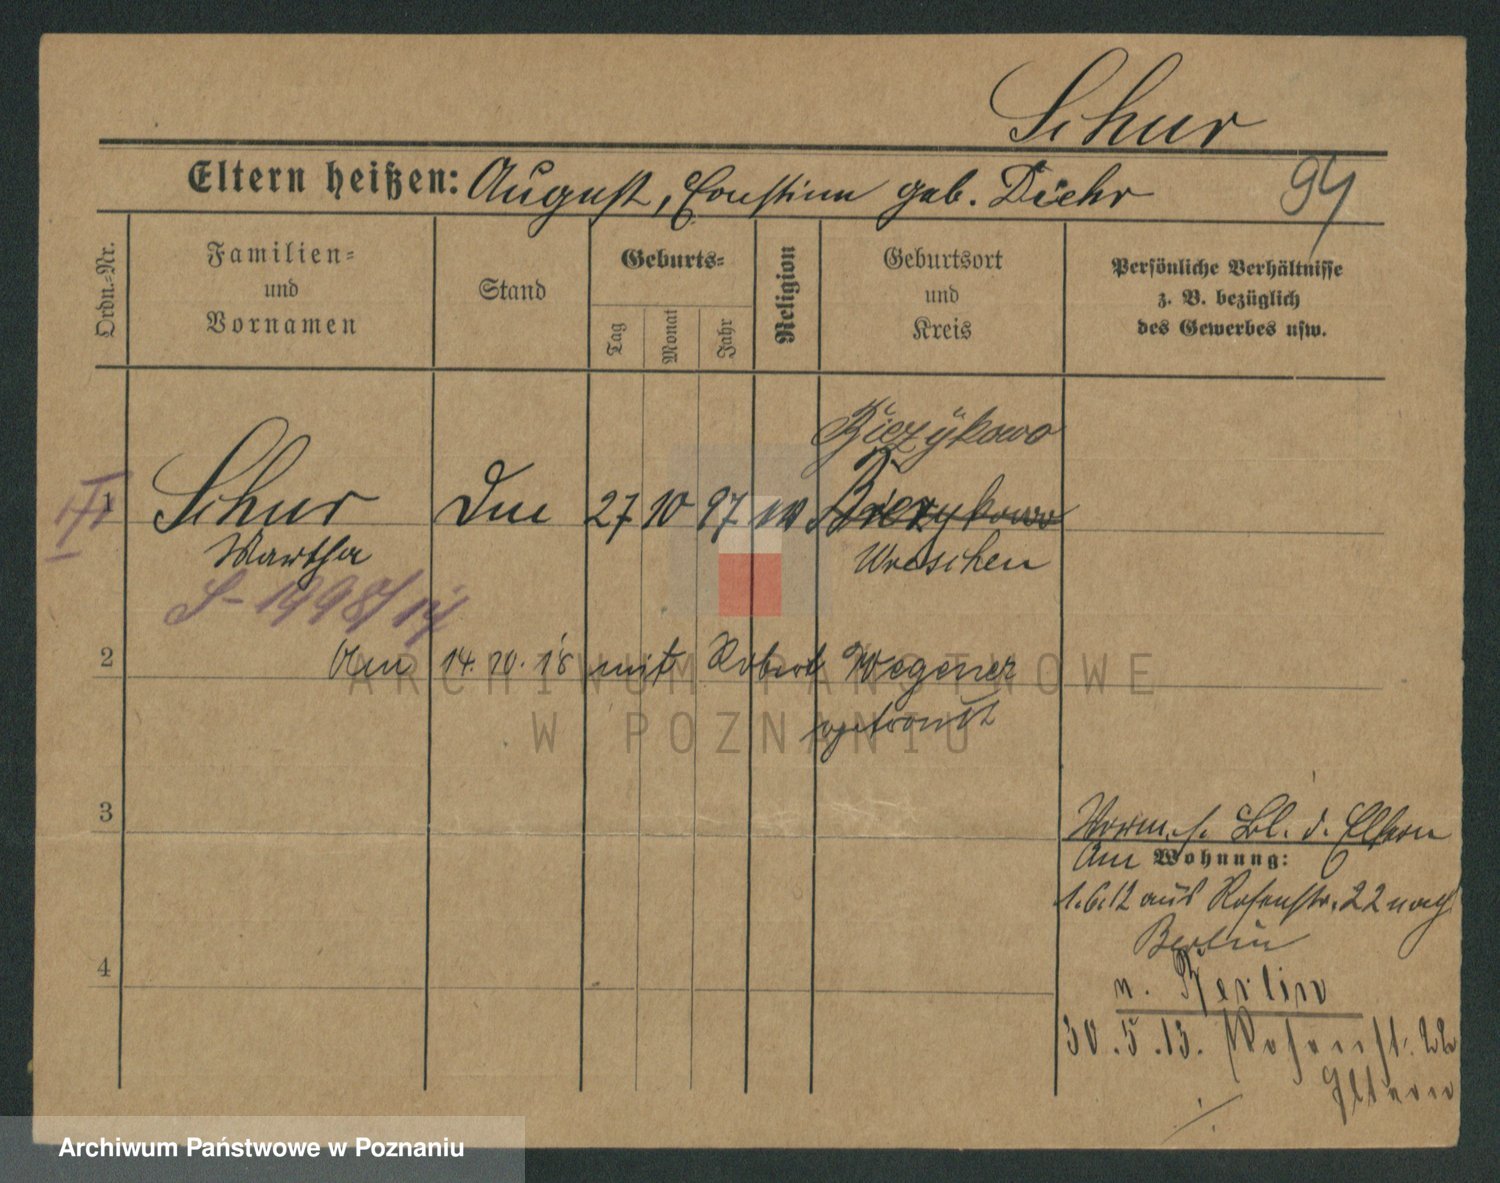 Schur
Eltern heißen: August, Constina geb. Diehr
94
Ordn.=Nr.
Familien=
und
Vornamen
Stand
Geburts=
Tag
Monat
Jahr
Religion
Geburtsort
und
Kreis
Persönliche Verhältnisse
z. B. bezüglich
des Gewerbes usw.
Bieżykowo
1 Schur 27 10 97 Bierzykowo
Martha Wreschen
S-1998/14
2 Am 14.10.18 mit Robert Wegener
getraut
3
Vorm. s. Bl. d. Eltern
Am Wohnung:
1.6.12 aus Rosenstr. 22 nach
Berlin
4
n. Berlin
30.5.13. Rosenst. 22
Eltern
ARCHIWUM PAŃSTWOWE
W POZNANIU
Archiwum Państwowe w Poznaniu